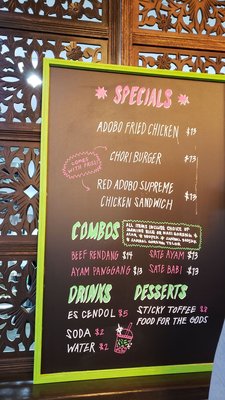 SPECIALS
ADOBO FRIED CHICKEN $13
COMES
WITH FRIES!
CHORI BURGER $13
RED ADOBO SUPREME
CHICKEN SANDWICH $13
COMBOS
ALL ITEMS INCLUDE CHOICE OF
BEEF RENDANG $14
SATE AYAM $13
AYAM PANGGANG $13
SATE BABI $13
DRINKS
DESSERTS
ES CENDOL $5
STICKY TOFFEE $8
SODA $2
FOOD FOR THE GODS
WATER $2